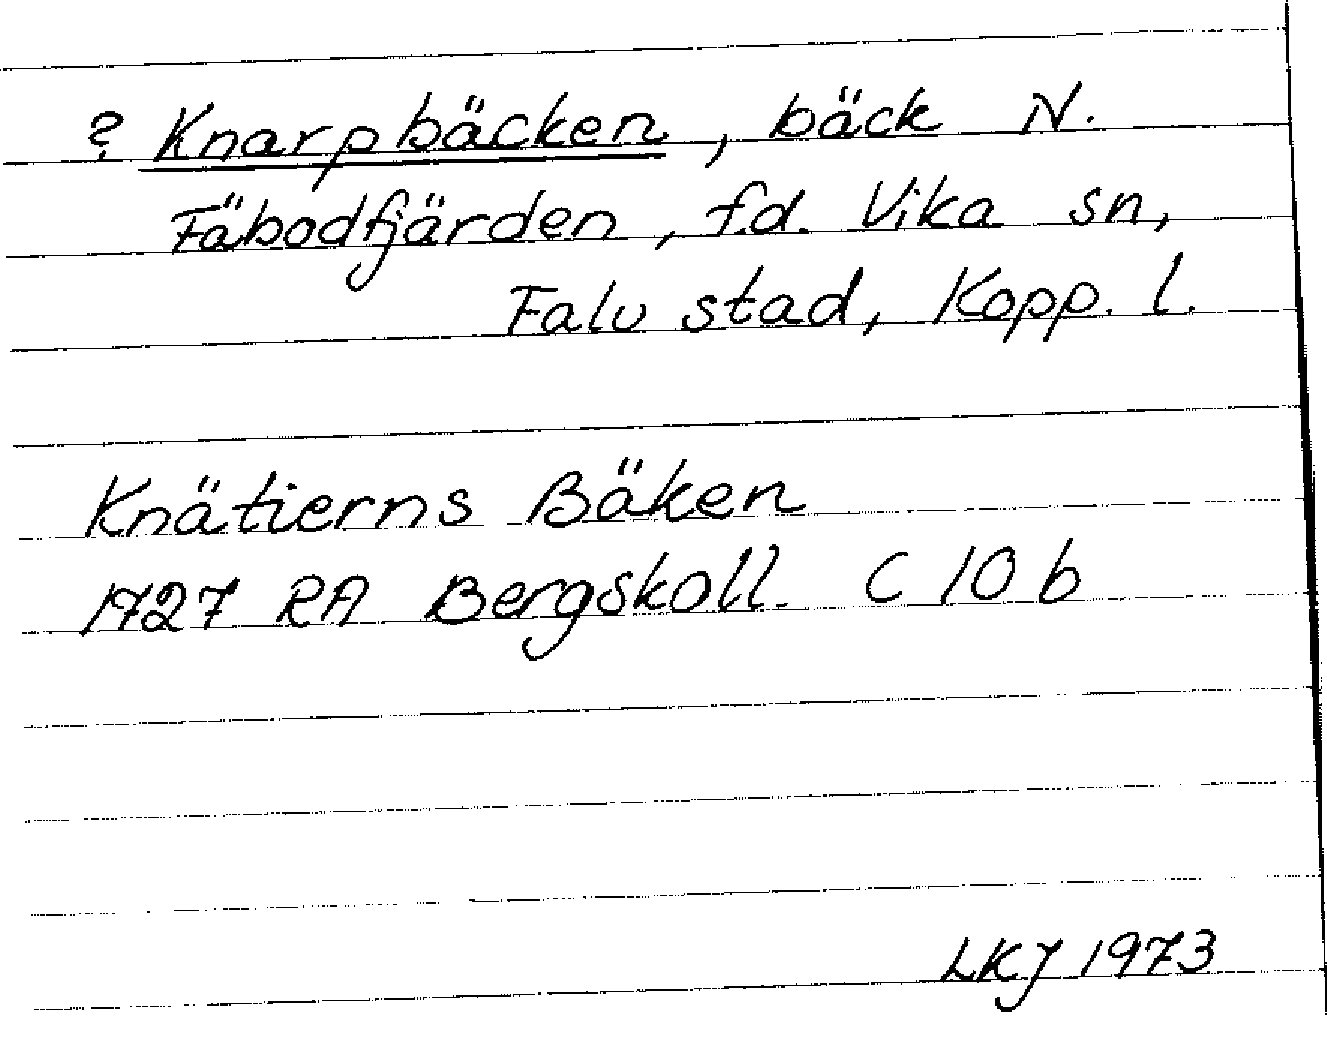 ? Knarpbäcken, bäck N.
Fäbodfjärden, f.d. Vika sn,
Falu stad, Kopp. l.
Knätierns Bäken
1727 RA Bergskoll. C 10 b
LKJ 1973